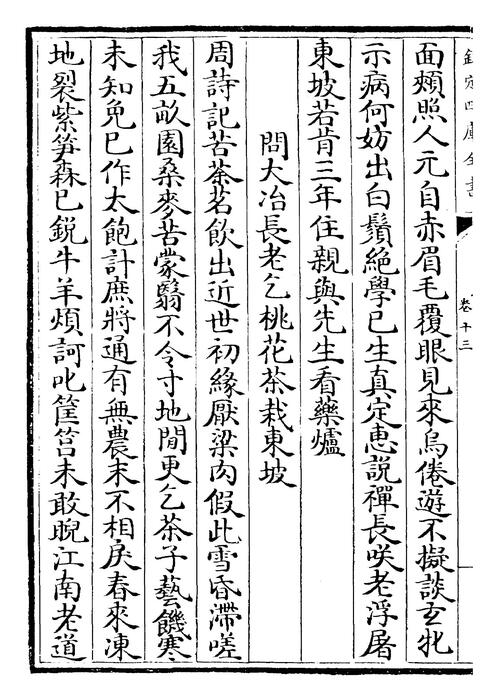 欽定四庫全書
卷十三
面頰照人元自赤眉毛覆眼見來烏倦遊不擬談玄牝
示病何妨出白鬚絶學已生真定慧説禪長咲老浮屠
東坡若肯三年住親與先生看藥爐
問大冶長老乞桃花茶栽東坡
周詩記苦茶茗飲出近世初緣厭粱肉假此雪昏滯嗟
我五畝園桑麥苦蒙翳不令寸地閒更乞茶子藝饑寒
未知免已作太飽計庶將通有無農末不相戾春來凍
地裂紫笋森已鋭牛羊煩訶叱筐筥未敢睨江南老道